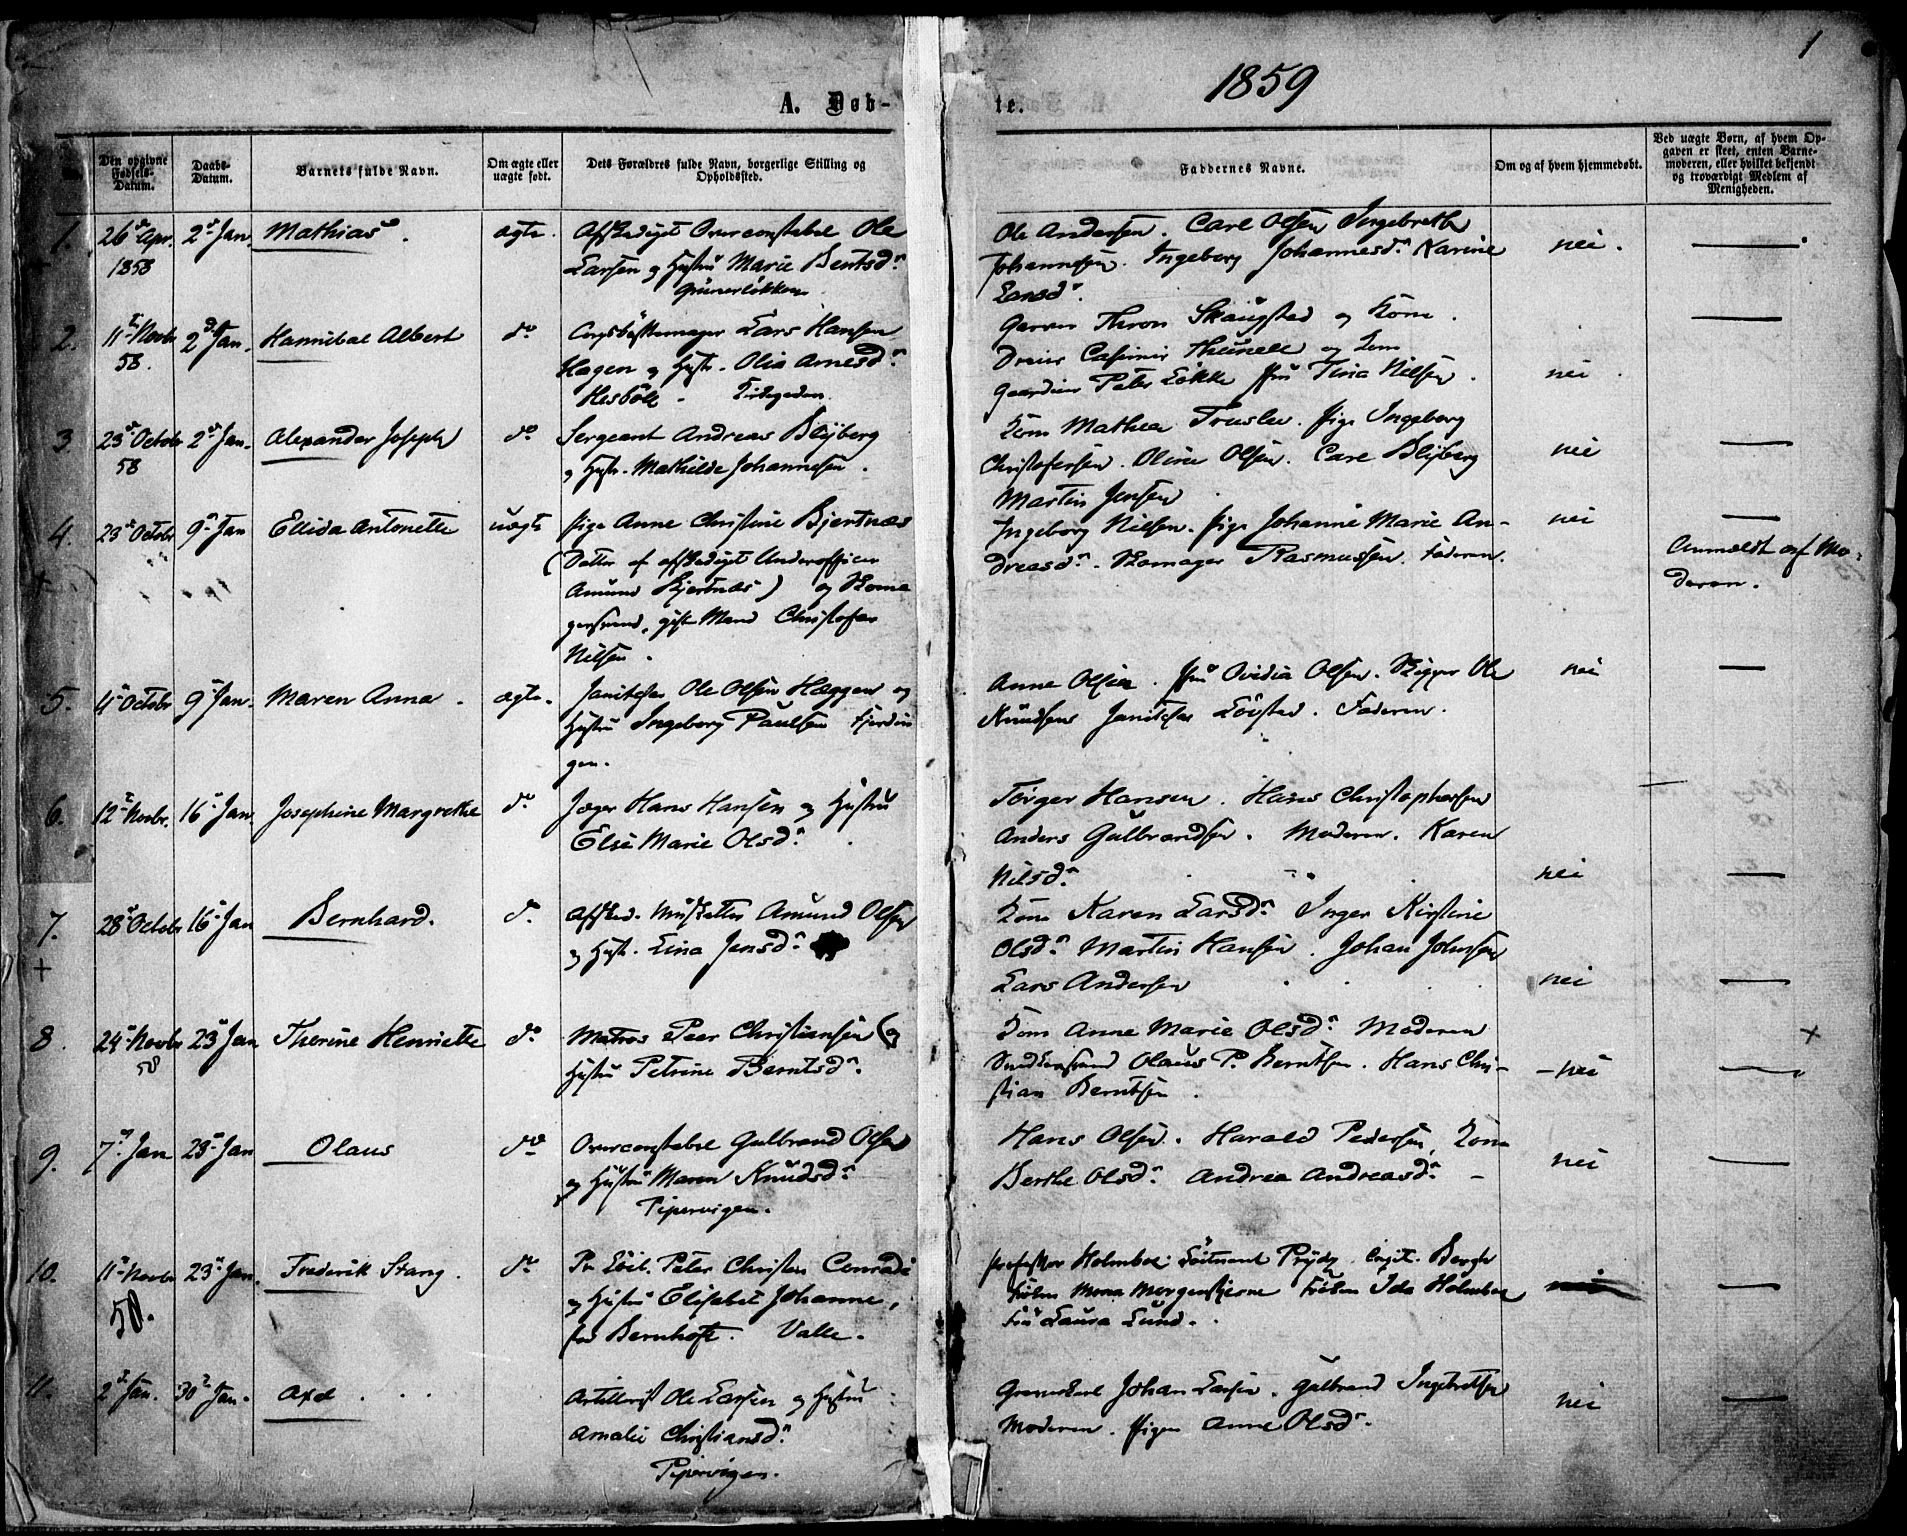 1
1859
A. Døb-
te.
Den opgivne Fødsels-Datum.
Daabs-Datum.
Barnets fulde Navn.
Om ægte eller uægte født.
Dets Forældres fulde Navn, borgerlige Stilling og Opholdssted.
Faddernes Navne.
Om og af hvem hjemmedøbt.
Ved uægte Børn, af hvem Opgaven er skeet, enten Barnemoderen, eller hvilket bekjendt og troværdigt Medlem af Menigheden.
1. 26 Apr. 2 Jan. Mathias. ægte. Afskediget Overconstabel Ole
1858 Larsen og Hustru Marie Berntsd.
Grünerløkken
Ole Andersen. Carl Olsen Ingebreth
Johannesen. Ingeborg Johannesd. Karine nei.
Larsd.
2. 11 Novbr 2 Jan. Hannibal Albert do Lars Hansen
58. Hagen og Hustr. Olia Arnesd.
Hesböll.
Garver Thron Skaugstad og Kone.
Dreier Casimir Thunell og Kone
Peter Løkke Fru Tina Nilsen. nei.
3. 23 Octobr 2 Jan. Alexander Joseph do Sergeant Andreas Blyberg
58 og Hustr. Mathilde Johannesen.
Kone Mathea Pige Ingeborg
Christofersen. Oline Olsen. Carl Blyberg nei
Martin Jensen
4. 23 Octobr 9 Jan Ellida Antonette uægte Pige Anne Christine Bjertnæs
(Datter af afskediget Underofficier
Amund Bjertnæs) og Skoma
gersvend, gift Mand Christofer
Nilsen.
Ingeborg Nielsen. Pige Johanne Marie An-
dreasd. Skomager Rasmussen. Faderen. nei
Anmeldt af Mo-
deren.
5. 4 Octobr 9 Jan. Maren Anna. ægte. Janitschar Ole Olsen Hæggen og
Hustru Ingeborg Paulsen Fjerdin
gen.
Anne Olsen. Fru Ovidia Olsen. Skipper Ole nei
Knudsen Janitschar Løvstad. Faderen.
6. 12 Novbr. 16 Jan. Josephine Margrethe do Jæger Hans Hansen og Hustru
Else Marie Olsd.
Törger Hansen. Hans Christophersen
Anders Gulbrandsen. Moderen. Karen
Nilsd. nei
7. 28 Octobr 16 Jan Bernhard. do Afsked. Musketer Amund Olsen
+ og Hustr. Lina Jensd.
Kone Karen Larsd. Inger Kirstine
Olsd. Martin Hansen. Johan Johnsen
Lars Andersen nei
8. 24 Novbr 23 Jan Therine Henriette do Matros Peer Christiansen og
58 Hustru Petrine Berntsd.
Kone Anne Marie Olsd. Moderen +
Snedkersvend Olaus P. Berntsen. Hans Chri-
stian Berntsen. nei
9. 7 Jan 23 Jan Olaus do Overconstabel Gulbrand Olsen
og Hustru Maren Knudsd.
Pipervigen.
Hans Olsen. Harald Pedersen, Kone
Berthe Olsd. Andrea Andreasd. nei
10. 11 Novbr 23 Jan. Frederik Stang. do Pr. Löit. Peter Christen Conradi
58. og Hustru Elisabet Johanne,
fød Bernhoft. Valle.
Professor Holmboe. Löitnant Prydz. Capit. Bergh
Fröken Mona Morgenstjerne Fröken Ida Holmboe nei
Fru Laura Lund.
11. 2 Jan. 30 Jan. Axel Artillerist Ole Larsen og Hustru
Amalie Christiansd.
Pipervigen.
Johan Larsen. Gulbrand Ingebretsen
Moderen. Pigen Anne Olsd. nei